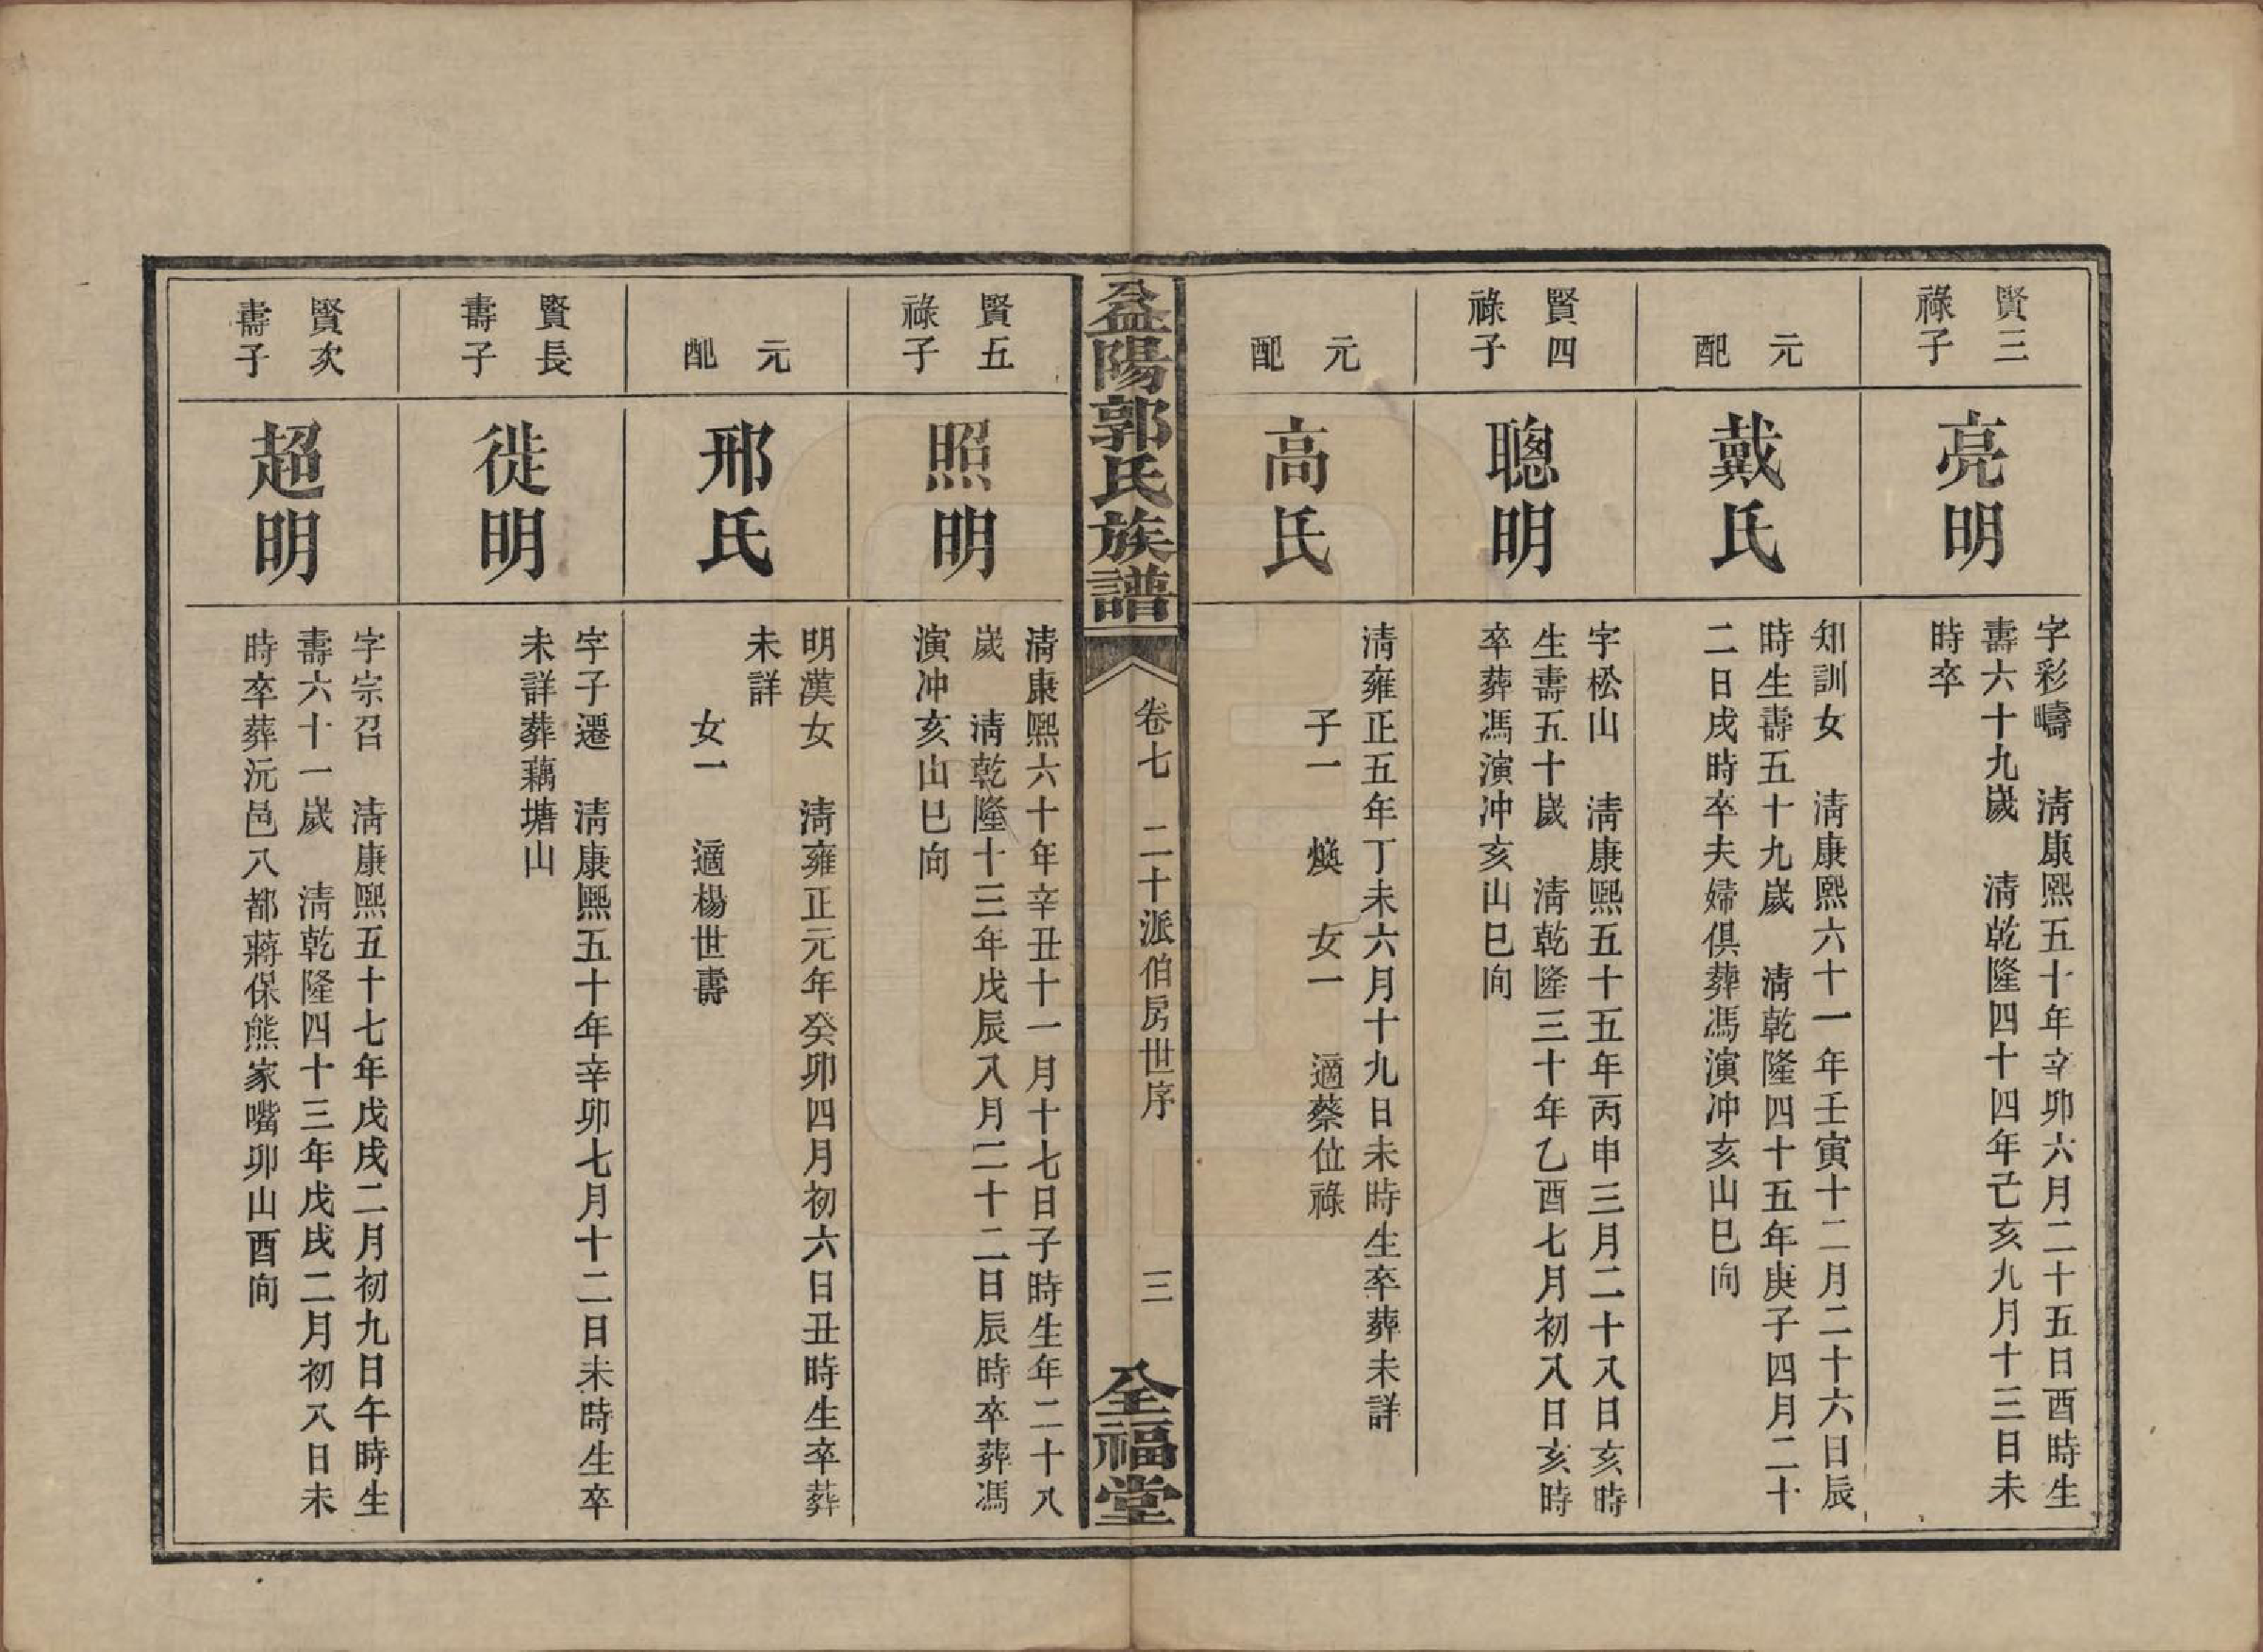 賢三
祿子
亮明
字彩疇　清康熙五十年辛卯六月二十五日酉時生
壽六十九嵗　清乾隆四十四年己亥九月十三日未
時卒
元
配
戴氏
知訓女　清康熙六十一年壬寅十二月二十六日辰
時生壽五十九嵗　清乾隆四十五年庚子四月二十
二日戌時卒夫婦俱葬馮演冲亥山巳向
賢四
祿子
聰明
字松山　清康熙五十五年丙申三月二十八日亥時
生壽五十嵗　清乾隆三十年乙酉七月初八日亥時
卒葬馮演冲亥山巳向
元
配
高氏
清雍正五年丁未六月十九日未時生卒葬未詳
子一　煥　女一　適蔡位祿
益陽郭氏族譜
卷七　二十派伯房世序
三
全福堂
賢五
祿子
照明
清康熙六十年辛丑十一月十七日子時生年二十八
嵗　清乾隆十三年戊辰八月二十二日辰時卒葬馮
演冲亥山巳向
元
配
邢氏
明漢女　清雍正元年癸卯四月初六日丑時生卒葬
未詳
女一　適楊世壽
賢長
壽子
徙明
字子遷　清康熙五十年辛卯七月十二日未時生卒
未詳葬藕塘山
賢次
壽子
超明
字宗召　清康熙五十七年戊戌二月初九日午時生
壽六十一嵗　清乾隆四十三年戊戌二月初八日未
時卒葬沅邑八都蔣保熊家嘴卯山酉向